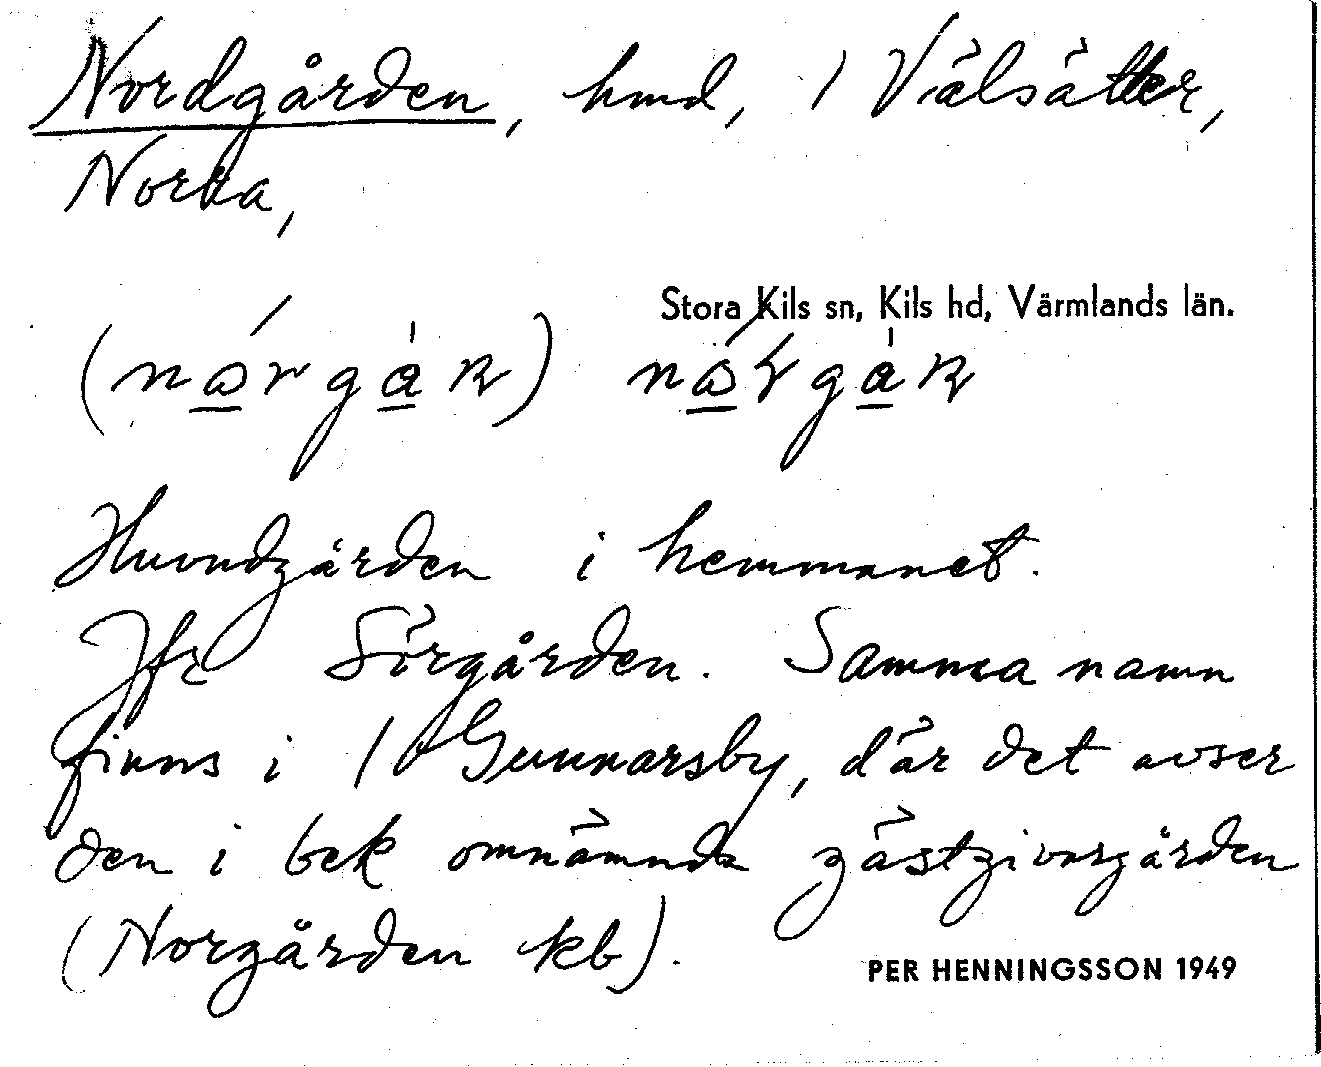 Nordgården, hmd, 1 Välsätter,
Norra,
Stora Kils sn, Kils hd, Värmlands län.
Huvudgården i hemmanet.
Jfr Sörgården. Samma namn
finns i 1 Gunnarsby, där det avser
den i bek omnämnda gästgivargården
(Norgården kb).
PER HENNINGSSON 1949